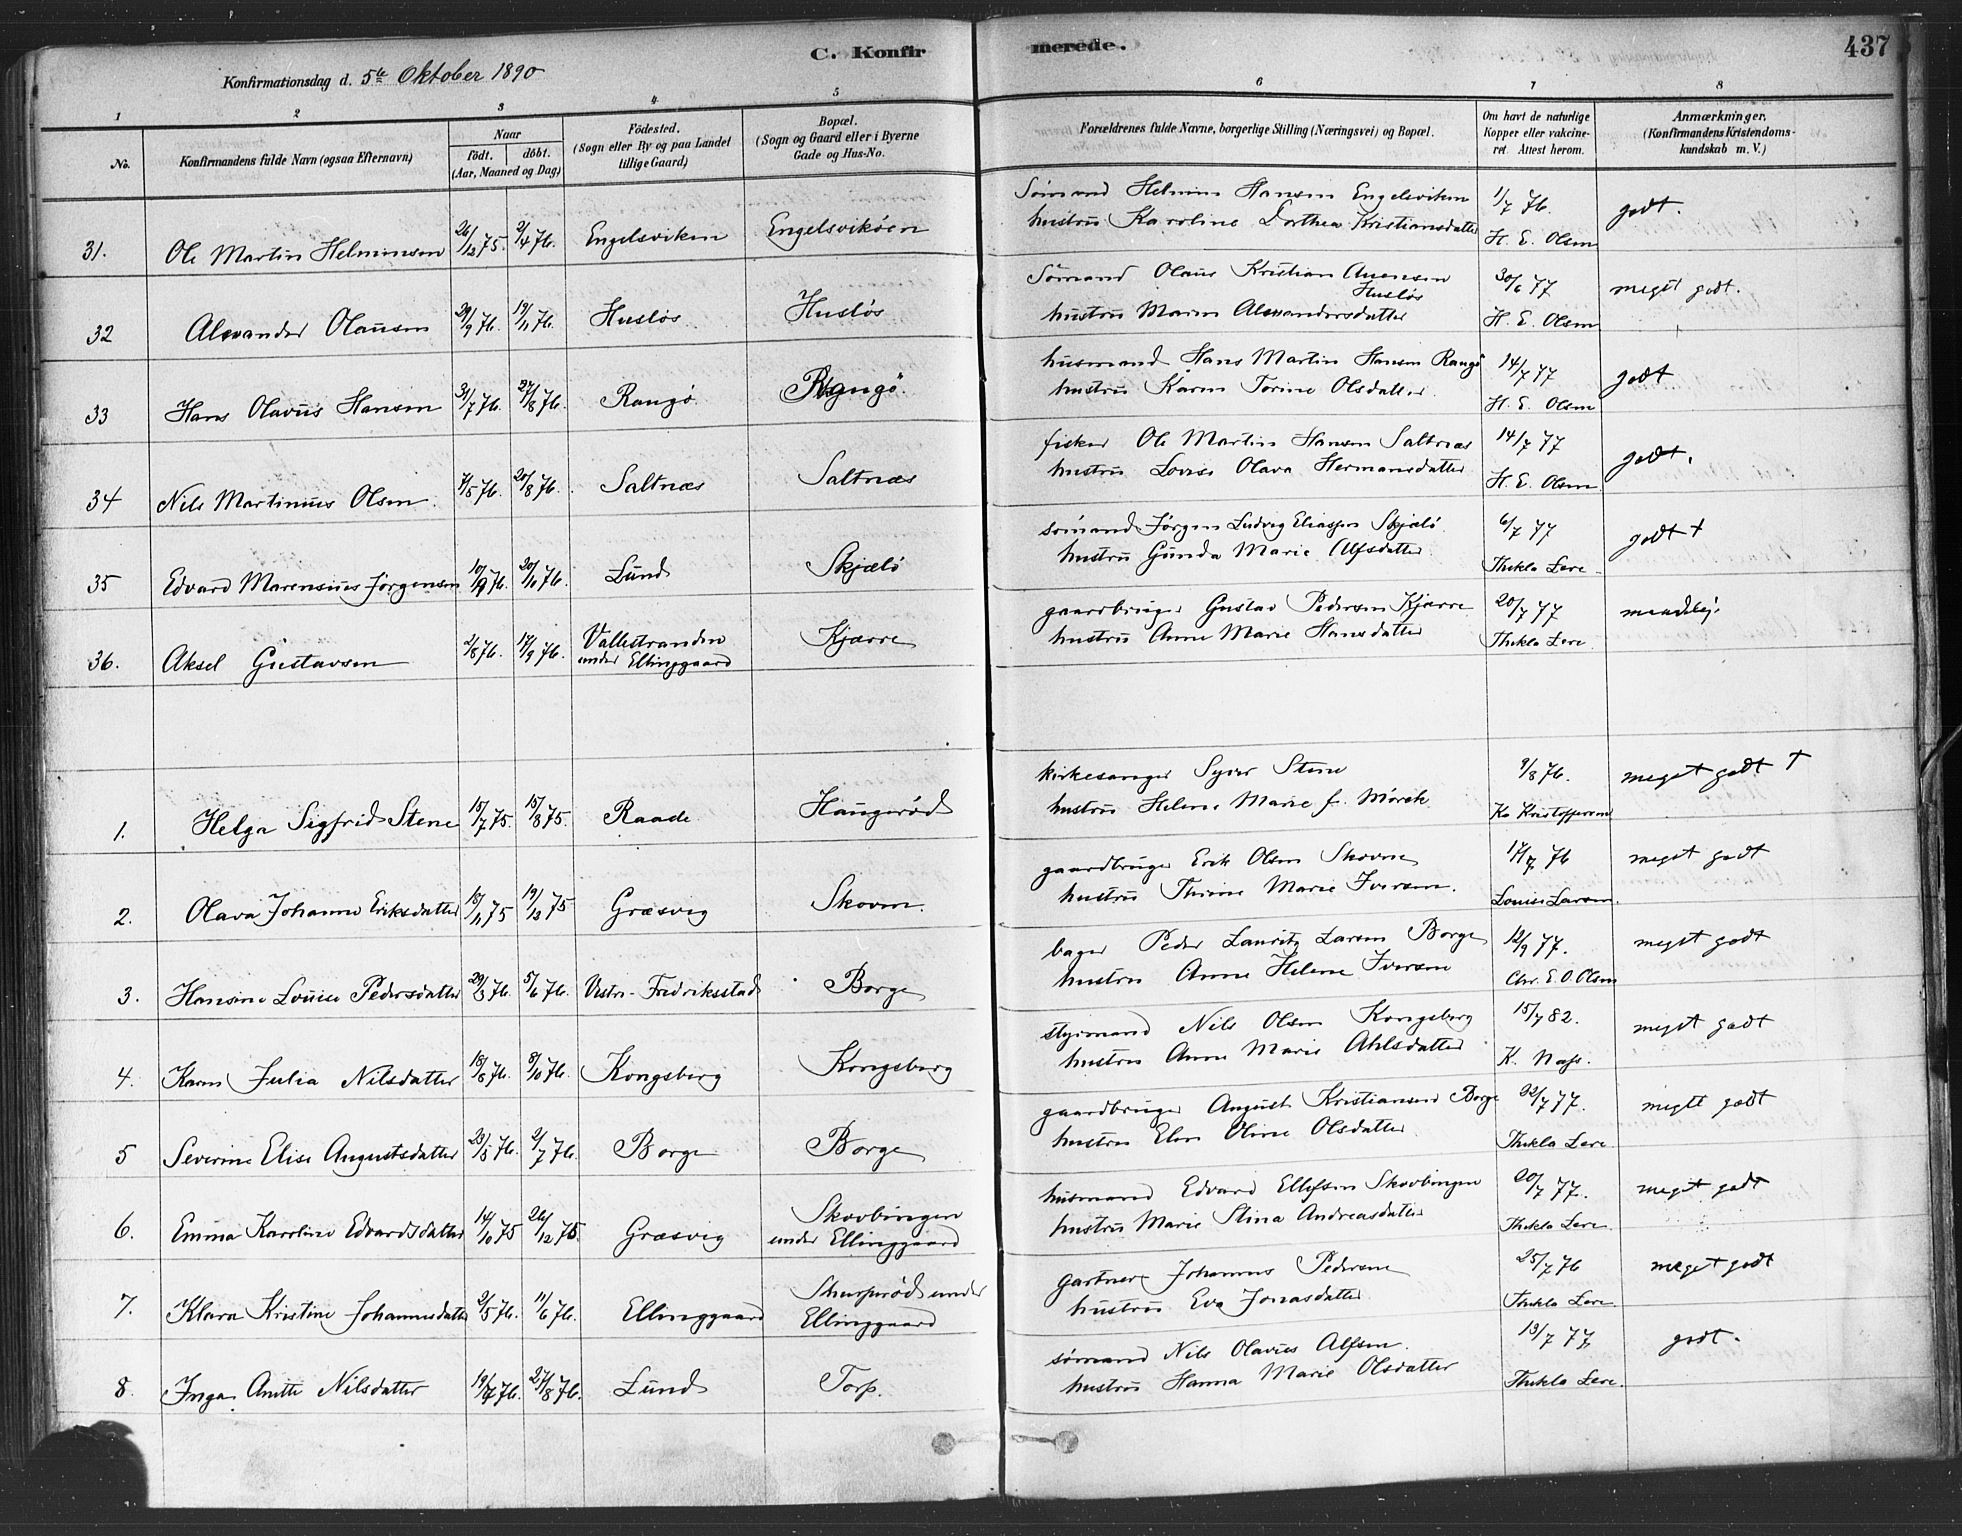 C. Konfirmerede. 437
Konfirmationsdag d. 5te Oktober 1890
1 2 3 4 5 6 7 8
No.
Konfirmandens fulde Navn (ogsaa Efternavn)
Naar
födt. döbt.
(Aar, Maaned og Dag)
Födested.
(Sogn eller By og paa Landet
tillige Gaard)
Bopæl.
(Sogn og Gaard eller i Byerne
Gade og Hus-No.
Forældrenes fulde Navne, borgerlige Stilling (Næringsvei) og Bopæl.
Om havt de naturlige
Kopper eller vakcine-
ret. Attest herom.
Anmærkninger.
(Konfirmandens Kristendoms-
kundskab m. V.)
31. Ole Martin Helminsen 26/12 75. 2/4 76. Engelsviken Engelsvikøen
Sømand Helmin Hansen Engelsviken 1/7 76. godt.
hustru Karoline Dorthea Kristiansdatter H. E. Olsen
32 Alexander Olausen 29/9 76. 19/11 76. Husløs Husløs
Sømand Olaus Kristian Anensen Husløs 30/6 77 meget godt.
hustru Maren Alexandersdatter H. E. Olsen
33 Hans Olavus Hansen 31/7 76. 27/8 76. Rangø Rangø.
husmand Hans Martin Hansen Rangø 14/7 77 godt
hustru Karen Torine Olsdatter. H. E. Olsen
34 Nils Martinius Olsen. 7/5 76. 20/8 76. Saltnæs Saltnæs
fisker Ole Martin Hansen Saltnæs 14/7 77 godt.
hustru Lovise Olava Hermansdatter H. E. Olsen
35 Edvard Marensius Jørgensen 10/9 76. 20/11 76. Lund Skjælø
sømand Jørgen Ludvig Eliassen Skjælø 6/7 77 godt +
hustru Gunda Marie Alfsdatter Thekla Lere
36. Aksel Gustavsen 2/8 76. 17/9 76. Vallestranden under Ellinggaard Kjærre
gaardbruger Gustav Pedersen Kjærre 20/7 77 maadelig.
hustru Anne Marie Hansdatter Thekla Lere
1. Helga Sigfrid Stene 15/7 75. 15/8 75. Raade Haugerød
kirkesanger Syver Stene 9/8 76. meget godt +
hustru Helene Marie f. Mørch K. Kristoffersen
2. Olava Johanne Eriksdatter 18/11 75 19/12 75 Græsvig Skoven.
gaardbruger Erik Olsen Skoven 17/7 76 meget godt
hustru Thrine Marie Iversen. Louise Larsen.
3. Hansine Louise Pedersdatter 29/3 76. 5/6 76. Vestre-Fredriksstad Borge
bager Peder Lauritz Larsen Borge 12/9 77. meget godt
hustru Anne Helene Iversen Chr. E. O. Olsen
4. Karen Julia Nilsdatter 18/8 76. 8/10 76. Kongsberg Kongsberg
styrmand Nils Olsen Kongsberg 15/7 82. meget godt
hustru Anne Marie Ahlsdatter K. Næss.
5 Severine Elise Augustsdatter 23/5 76. 2/7 76. Borge Borge
gaardbruger August Kristiansen Borge 22/7 77. meget godt
hustru Elen Oline Olsdatter Thekla Lere
6. Emma Karoline Edvardsdatter 14/10 75 26/12 75. Græsvig Skovbingen under Ellinggaard
husmand Edvard Ellefsen Skovbingen 20/7 77. meget godt
hustru Marie Stina Andreasdatter Thekla Lere
7. Klara Kristine Johannesdatter 2/5 76. 11/6 76. Ellinggaard Skurprød under Ellinggaard
gartner Johannes Pedersen 25/7 76 meget godt
hustru Eva Jonasdatter Thekla Lere
8. Inga Anette Nilsdatter 19/7 76. 27/8 76. Lund Torp.
sømand Nils Olavus Alfsen. 13/7 77 godt.
hustru Hanna Marie Olsdatter Thekla Lere.